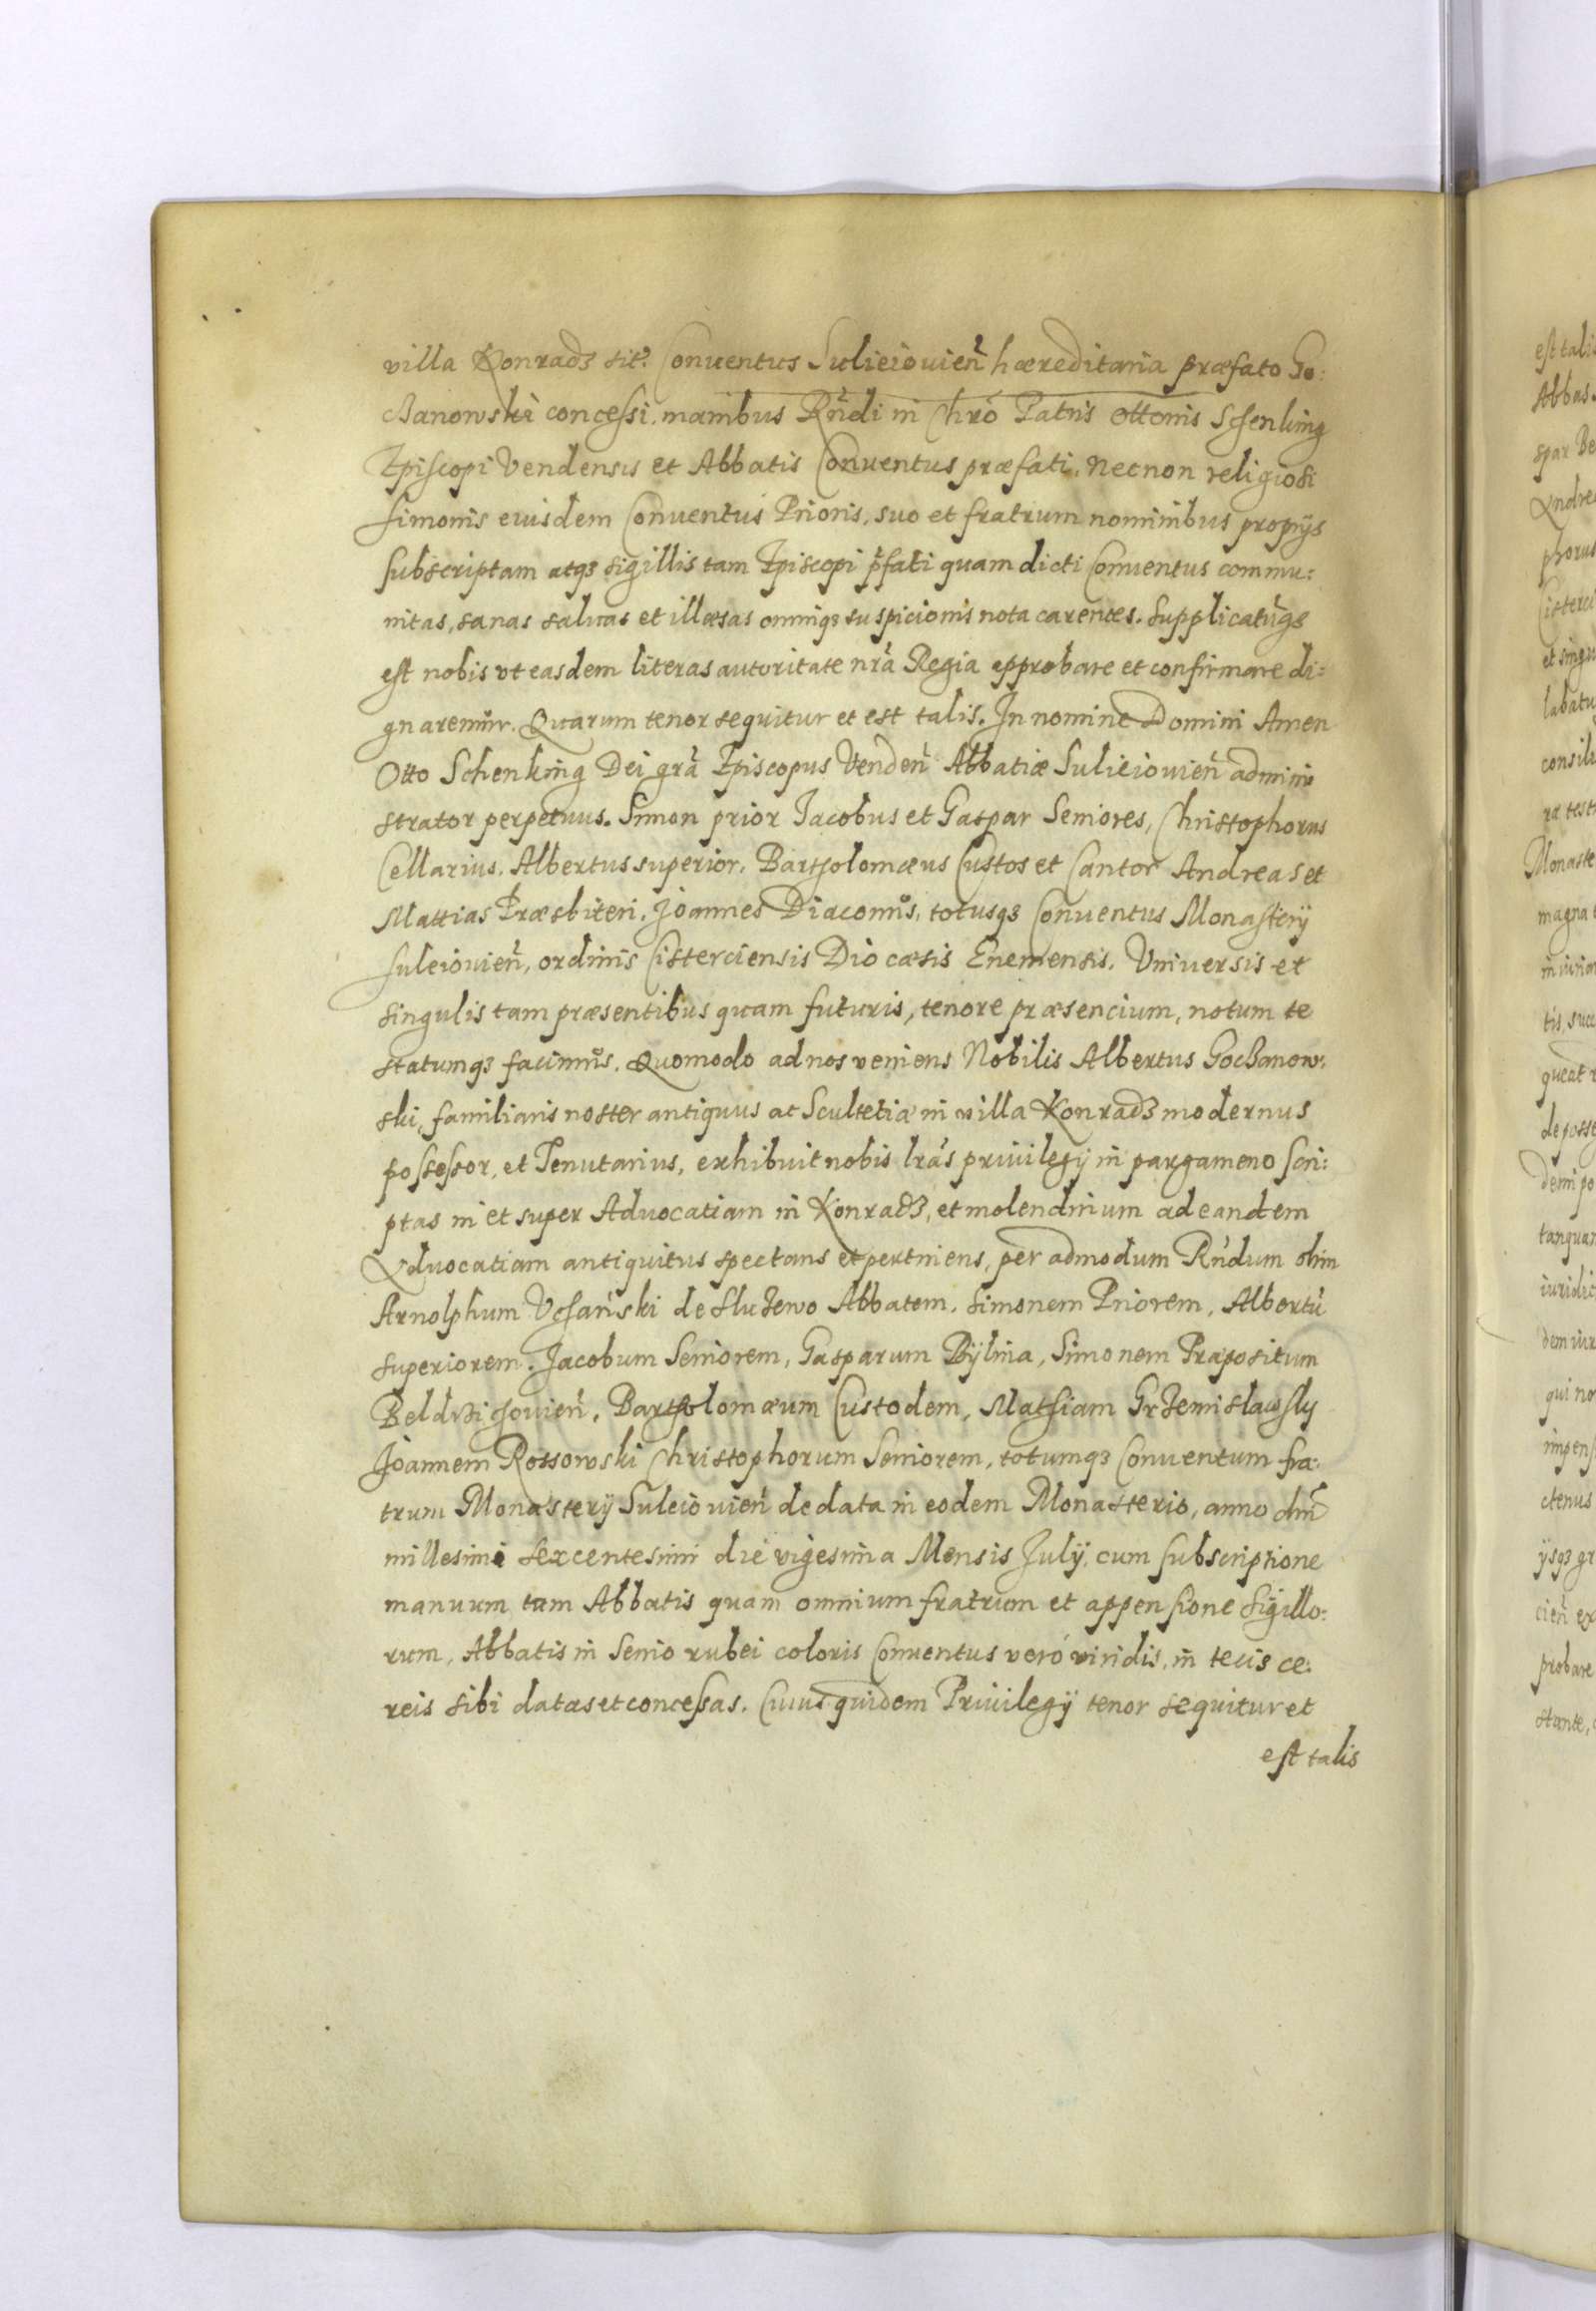 villa Konradz sit? Conuentus Sulieiouieñ hæreditaria præfato Go:
cßanowski concessi. manibus Rñdi in Chró Patris Ottonis Schenking
Episcopi Vendensis et Abbatis Conuentus præfati. Necnon religiosi
Simonis eiusdem Conuentus Prioris, suo et fratrum nominibus proprijs
subscriptam atqꝫ sigillis tam Episcopi p̃fati quam dicti Conuentus commu:
nitas, sanas saluas et illæsas omniqꝫ suspicionis nota carentes. Supplicatũqꝫ
est nobis vt easdem literas autoritate nr̃a Regia approbare et confirmare di:
gnaremur. Quarum tenor sequitur et est talis. In nomine Domini Amen
Otto Schenking Dei gr̃a Episcopus Vendeñ Abbatiæ Sulieiouieñ admini
strator perpetuus. Simon prior Iacobus et Gaspar Seniores, Christophorus
Cellarius. Albertus superior. Bartholomæus Custos et Cantor Andreas et
Mattias Præsbiteri. Joannes Diaconus, totusqꝫ Conuentus Monasterÿ
Suleiouieñ, ordinis Cisterciensis Diocæsis Enemensis. Vniuersis et
singulis tam præsentibus quam futuris, tenore præsencium, notum te
statumqꝫ facimus. Quomodo ad nos veniens Nobilis Albertus Gocßanow:
ski, familiaris noster antiquus ac Scultetiæ in villa Konradz modernus
possessor, et Tenutarius, exhibuit nobis lrãs priuilegÿ in pargameno scri:
ptas in et super Aduocatiam in Konradz, et molendinium ad eandem
Aduocatiam antiquitus spectans et pertinens, per admodum Rñdum olim
Arnolphum Vchański de Służewo Abbatem. Simonem Priorem, Albertũ
superiorem. Jacobum Seniorem, Gasparum Bÿlina, Simonem Præpositum
Beldrzichouieñ. Bartholomæum Custodem, Mathiam Grzemisławsky
Joannem Rossowski Christophorum Seniorem, totumqꝫ Conuentum fra:
trum Monasterÿ Suleiouieñ de data in eodem Monasterio, anno dñi
millesimi sexcentesimi die vigesima Mensis Julÿ, cum subscriptione
manuum tam Abbatis quam omnium fratrum et appensione sigillo:
rum, Abbatis in Senio rubei coloris Conuentus veró viridis, in tecis ce:
reis sibi datas et concessas. Cuius quidem Priuilegÿ tenor sequitur et
est talis